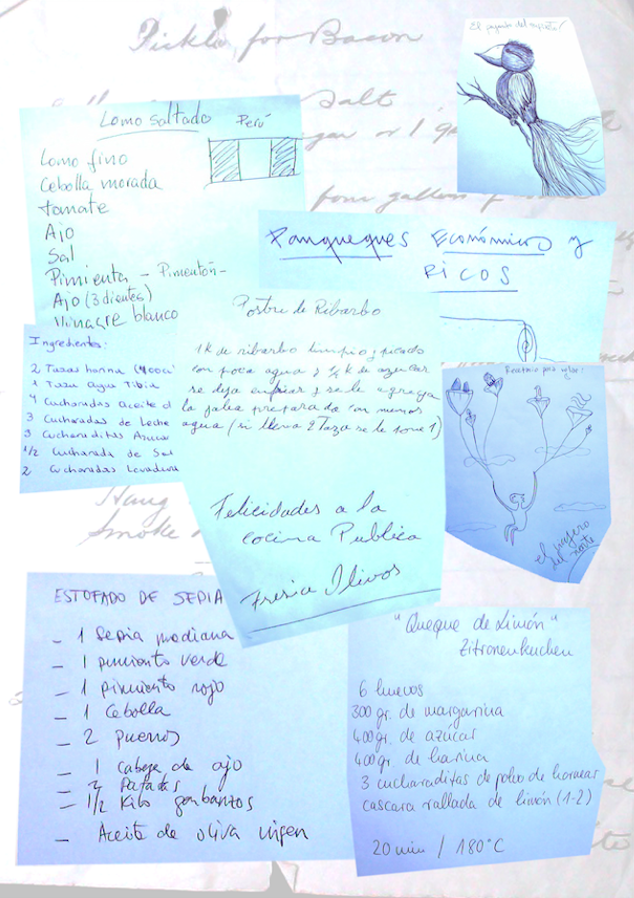 Pickle for Bacon
Salt
four gallons
Hang
Smoke
El pajarito del
Lomo saltado Perú
Lomo fino
Cebolla morada
tomate
Ajo
Sal
Pimienta - Pimentón -
Ajo (3 dientes)
Vinagre blanco
Panqueques Económicos y
RICOS
Postre de Ribarbo
1 K de ribarbo limpio y picado
con poca agua y 1/2 k de azucar
se deja enfriar y se le agrega
la jalea preparada con menos
agua (si lleva 2 taza se le pone 1)
Felicidades a la
cocina Publica
Fresia Olivos
Ingredientes:
2 Tazas harina (400
1 Taza agua Tibia
4 Cucharadas Aceite d
3 Cucharadas de Leche
3 Cucharaditas Azucar
1/2 Cucharada de Sal
2 Cucharadas Levadura
Recetario para volar:
el pajaro
del norte
ESTOFADO DE SEPIA
- 1 Sepia mediana
- 1 pimiento verde
- 1 pimiento rojo
- 1 Cebolla
- 2 puerros
- 1 cabeza de ajo
- 3 Patatas
- 1/2 Kilo garbanzos
- Aceite de oliva virgen
"Queque de Limón"
Zitronenkuchen
6 huevos
300 gr. de margarina
400 gr. de azúcar
400 gr. de harina
3 cucharaditas de polvo de hornear
cascara rallada de limón (1-2)
20 min / 180°C